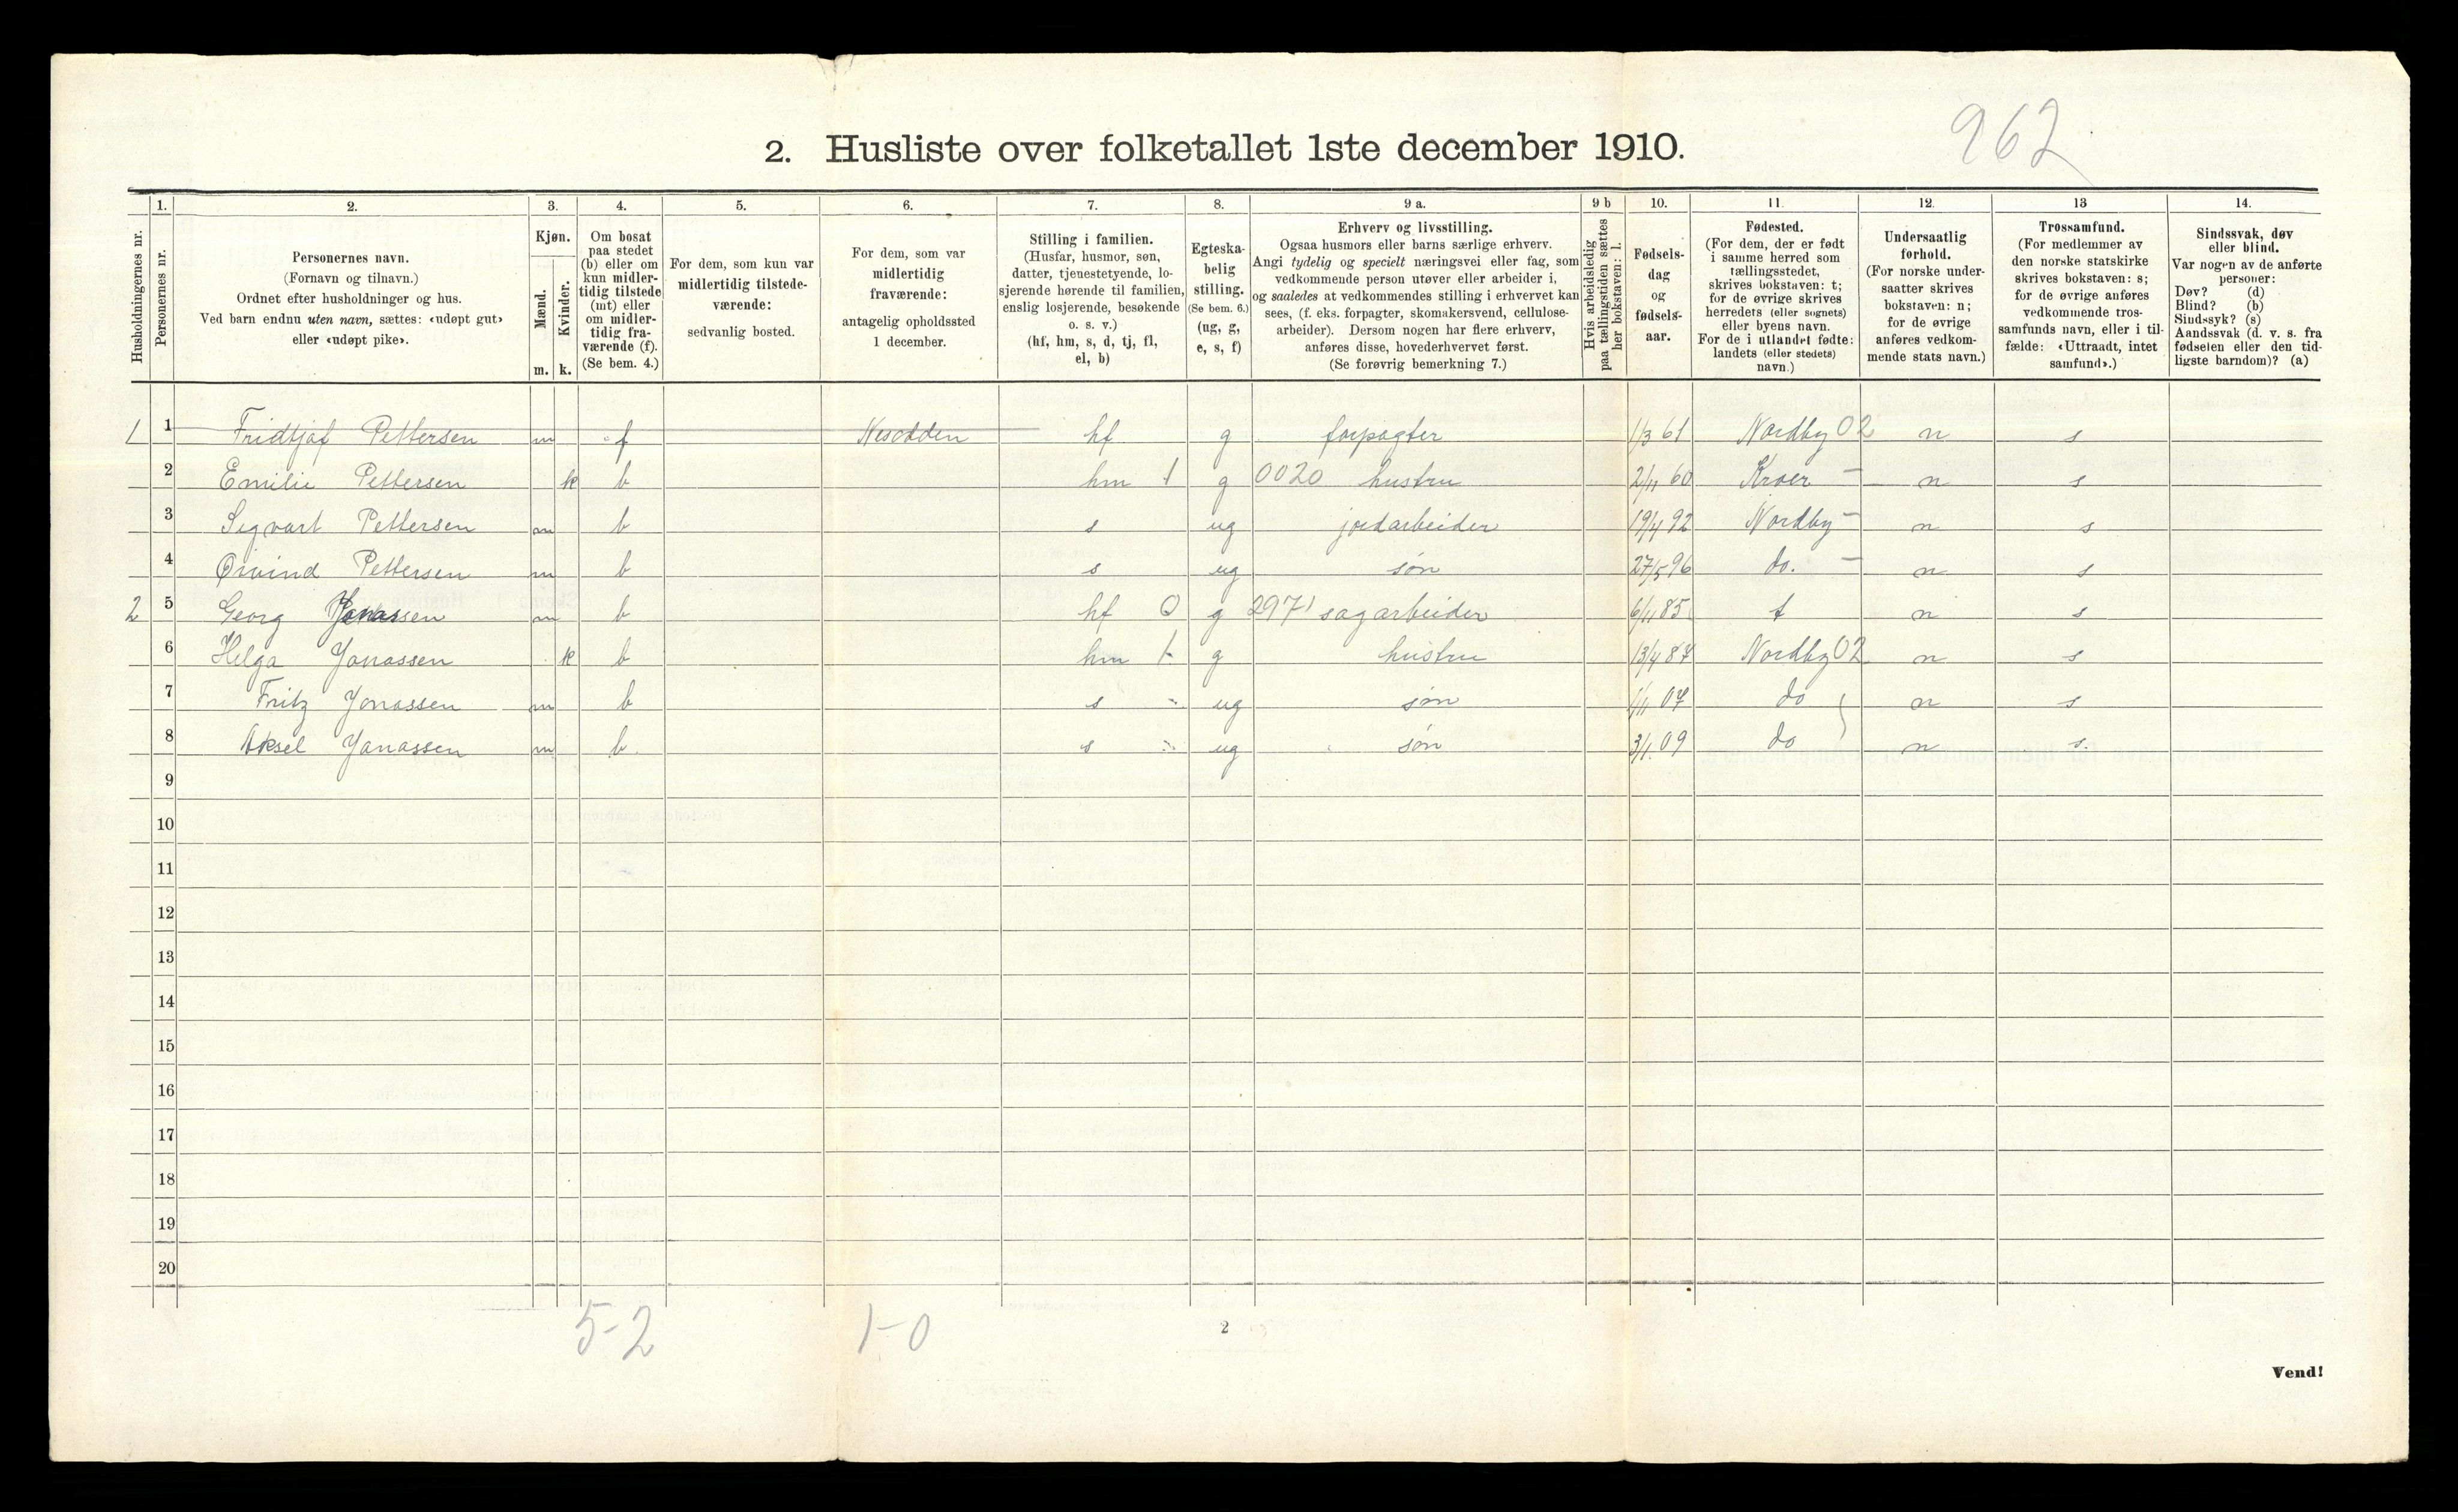 962
2. Husliste over folketallet 1ste december 1910.
Husholdningernes nr.
1.
Personernes nr.
2.
Personernes navn.
(Fornavn og tilnavn.)
Ordnet efter husholdninger og hus.
Ved barn endnu uten navn, sættes: «udøpt gut»
eller «udøpt pike».
3.
Kjøn.
Mænd.
Kvinder.
m. k.
4.
Om bosat
paa stedet
(b) eller om
kun midler-
tidig tilstede
(mt) eller
om midler-
tidig fra-
værende (f).
(Se bem. 4.)
5.
For dem, som kun var
midlertidig tilstede-
værende:
sedvanlig bosted.
6.
For dem, som var
midlertidig
fraværende:
antagelig opholdssted
1 december.
7.
Stilling i familien.
(Husfar, husmor, søn,
datter, tjenestetyende, lo-
sjerende hørende til familien,
enslig losjerende, besøkende
o. s. v.)
(hf, hm, s, d, tj, fl,
el, b)
8.
Egteska-
belig
stilling.
(Se bem. 6.)
(ug, g,
e, s, f)
9 a.
Erhverv og livsstilling.
Ogsaa husmors eller barns særlige erhverv.
Angi tydelig og specielt næringsvei eller fag, som
vedkommende person utøver eller arbeider i,
og saaledes at vedkommendes stilling i erhvervet kan
sees, (f. eks. forpagter, skomakersvend, cellulose-
arbeider). Dersom nogen har flere erhverv,
anføres disse, hovederhvervet først.
(Se forøvrig bemerkning 7.)
9 b
Hvis arbeidsledig
paa tællingstiden sættes
her bokstaven: l.
10.
Fødsels-
dag
og
fødsels-
aar.
11.
Fødested.
(For dem, der er født
i samme herred som
tællingsstedet,
skrives bokstaven: t;
for de øvrige skrives
herredets (eller sognets)
eller byens navn.
For de i utlandet fødte:
landets (eller stedets)
navn.)
12.
Undersaatlig
forhold.
(For norske under-
saatter skrives
bokstaven: n;
for de øvrige
anføres vedkom-
mende stats navn.)
13
Trossamfund.
(For medlemmer av
den norske statskirke
skrives bokstaven: s;
for de øvrige anføres
vedkommende tros-
samfunds navn, eller i til-
fælde: «Uttraadt, intet
samfund».)
14.
Sindssvak, døv
eller blind.
Var nogen av de anførte
personer:
Døv? (d)
Blind? (b)
Sindssyk? (s)
Aandssvak (d. v. s. fra
fødselen eller den tid-
ligste barndom)? (a)
1 1 Fridtjof Pettersen m f Nesodden hf g forpagter 1/3 61 Nordby 02 n s
2 Emilie Pettersen k b hm 1 g 0020 hustru 2/11 60 Kroer – n s
3 Sigvart Pettersen m b s ug jordarbeider 19/4 92 Nordby – n s
4 Øivind Pettersen m b s ug søn 27/5 96 do. – n s
2 5 Georg Jonassen m b hf 0 g 2971 sagarbeider 6/11 85 t n s
6 Helga Jonassen k b hm 1 g hustru 13/4 87 Nordby 02 n s
7 Fritz Jonassen m b s ug søn 1/11 07 do n s
8 Aksel Jonassen m b s ug søn 3/1 09 do n s.
9
10
11
12
13
14
15
16
17
18
19
20
5-2 1-0
2
Vend!